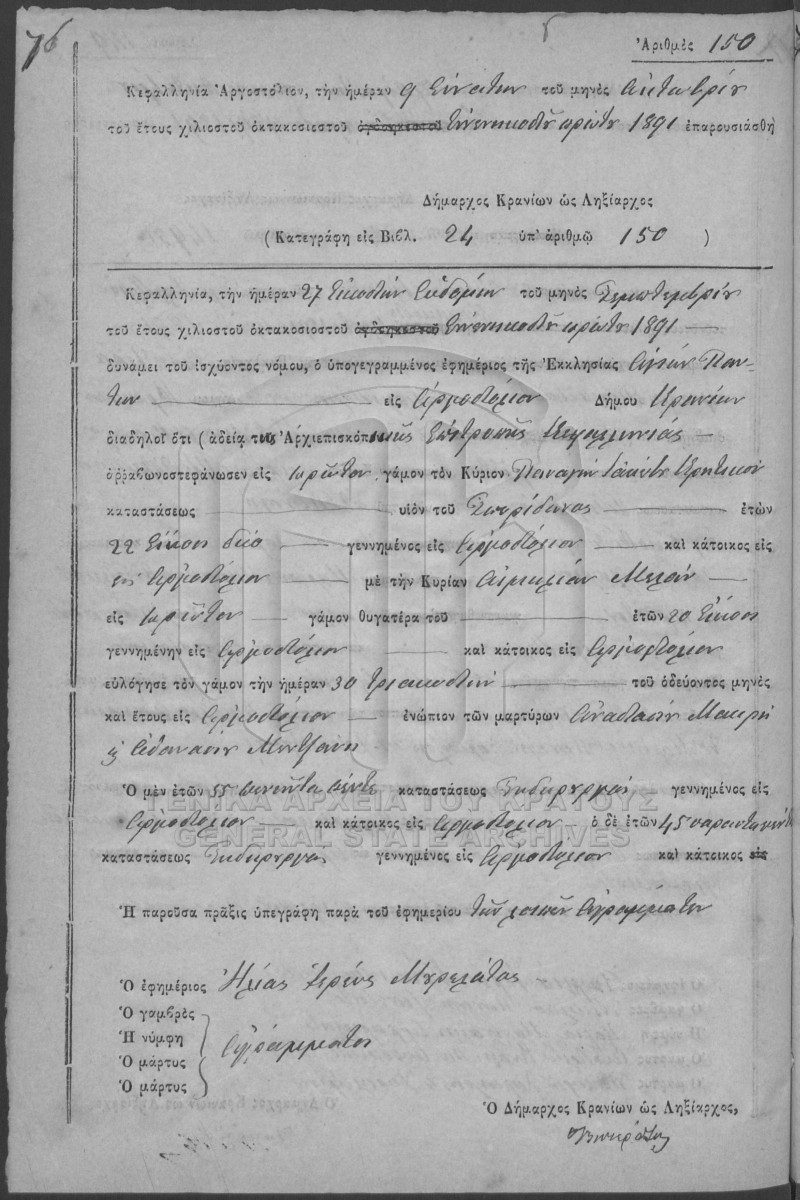 76
Ἀριθμὸς 150
Κεφαλληνία Ἀργοστόλιον, τὴν ἡμέραν 9 Ἐννάτην τοῦ μηνὸς Ὀκτωβρίου
τοῦ ἔτους χιλιοστοῦ ὀκτακοσιοστοῦ ὀγδοηκοστοῦ Ἐννενηκοστοῦ πρώτου 1891 ἐπαρουσιάσθη
Δήμαρχος Κρανίων ὡς Ληξίαρχος
( Κατεγράφη εἰς Βιβλ. 24 ὑπ' ἀριθμῷ 150 )
Κεφαλληνία, τὴν ἡμέραν 27 Εἰκοστὴν Ἑβδόμην τοῦ μηνὸς Σεπτεμβρίου
τοῦ ἔτους χιλιοστοῦ ὀκτακοσιοστοῦ ὀγδοηκοστοῦ Ἐννενηκοστοῦ πρώτου 1891
δυνάμει τοῦ ἰσχύοντος νόμου, ὁ ὑπογεγραμμένος ἐφημέριος τῆς Ἐκκλησίας Ἁγίων Παν-
των εἰς Ἀργοστόλιον Δήμου Κρανίων
διαδηλοῖ ὅτι ( ἀδείᾳ τῆς Ἀρχιεπισκοπικῆς Ἐπιτροπῆς Κεφαλληνίας
ἀῤῥαβωνοστεφάνωσεν εἰς πρῶτον γάμον τὸν Κύριον Παναγὴν Κρητικὸν
καταστάσεως υἱὸν τοῦ Σπυρίδωνος ἐτῶν
22 Εἴκοσι δύο γεννημένος εἰς Ἀργοστόλιον καὶ κάτοικος εἰς
εἰς Ἀργοστόλιον μὲ τὴν Κυρίαν Αἰμιλίαν
εἰς πρῶτον γάμον θυγατέρα τοῦ ἐτῶν 20 Εἴκοσι
γεννημένην εἰς Ἀργοστόλιον καὶ κάτοικος εἰς Ἀργοστόλιον
εὐλόγησε τὸν γάμον τὴν ἡμέραν 30 τριακοστὴν τοῦ ὁδεύοντος μηνὸς
καὶ ἔτους εἰς Ἀργοστόλιον ἐνώπιον τῶν μαρτύρων Ἀναστασίου Μακρῆ
Ἀθανασίου
Ὁ μὲν ἐτῶν 55 πενῆντα πέντε καταστάσεως γεννημένος εἰς
Ἀργοστόλιον καὶ κάτοικος εἰς Ἀργοστόλιον ὁ δὲ ἐτῶν 45 σαράντα πέντε
καταστάσεως γεννημένος εἰς Ἀργοστόλιον καὶ κάτοικος εἰς
ΓΕΝΙΚΑ ΑΡΧΕΙΑ ΤΟΥ ΚΡΑΤΟΥΣ
GENERAL STATE ARCHIVES
Ἡ παροῦσα πρᾶξις ὑπεγράφη παρὰ τοῦ ἐφημερίου τῶν λοιπῶν ἀγραμμάτων
Ὁ ἐφημέριος Ἠλίας Ἱερεὺς
Ὁ γαμβρὸς
Ἡ νύμφη
Ἀγράμματοι
Ὁ μάρτυς
Ὁ μάρτυς
Ὁ Δήμαρχος Κρανίων ὡς Ληξίαρχος,